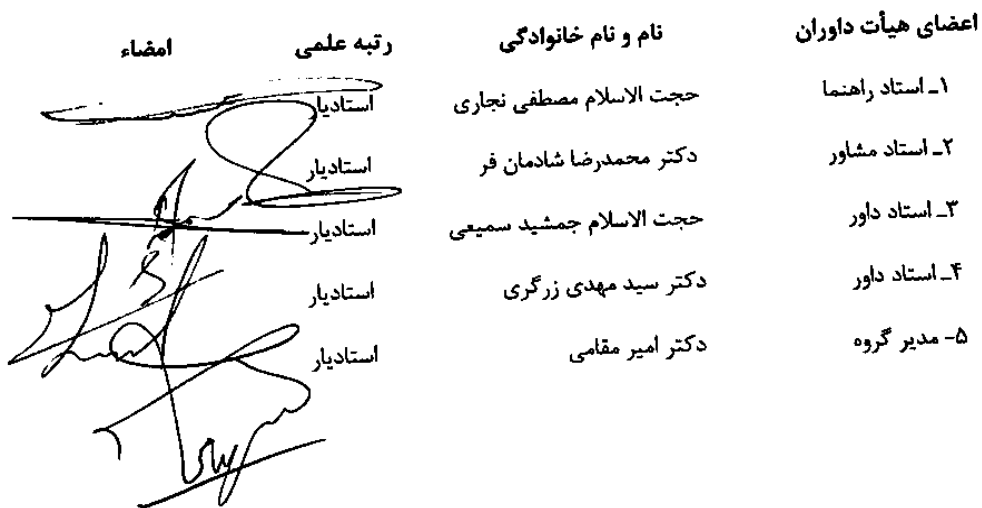 اعضای هیأت داوران نام و نام خانوادگی رتبه علمی امضاء
۱ـ استاد راهنما حجت الاسلام مصطفی نجاری استادیار
۲ـ استاد مشاور دکتر محمدرضا شادمان فر استادیار
۳ـ استاد داور حجت الاسلام جمشید سمیعی استادیار
۴ـ استاد داور دکتر سید مهدی زرگری استادیار
۵- مدیر گروه دکتر امیر مقامی استادیار